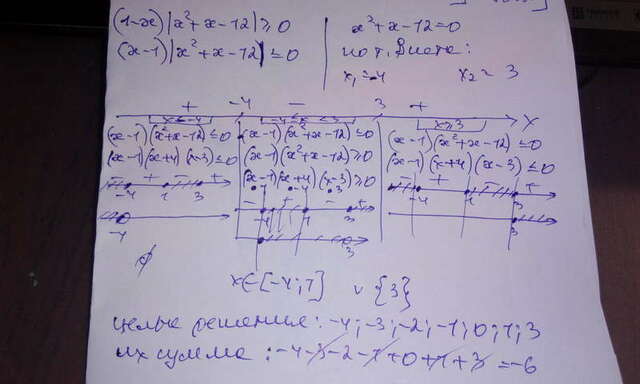 (1-x)|x²+x-12| ≥ 0
(x-1)|x²+x-12| ≤ 0
x²+x-12=0
по т. Виета:
x₁=-4 x₂=3
+ -4 - 3 + x
x<-4 -4≤x≤3 x≥3
(x-1)(x²+x-12)≤0
(x-1)(x+4)(x-3)≤0
- + - +
-4 1 3
-4
∅
(x-1)(x²+x-12)≤0
(x-1)(x²+x-12)≥0
(x-1)(x+4)(x-3)≥0
- + - +
-4 1 3
3
(x-1)(x²+x-12)≤0
(x-1)(x+4)(x-3)≤0
- + - +
-4 1 3
3
x∈[-4;1] ∪ {3}
целые решения: -4; -3; -2; -1; 0; 1; 3
их сумма: -4-3-2-1+0+1+3=-6